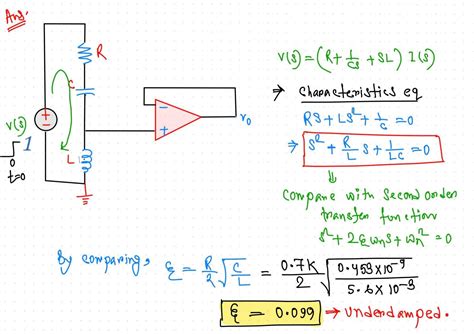 Ans:
R
C
V(s)
1
L
t=0
v₀
V(s) = (R + 1/CS + SL) I(s)
→ Characteristics eq
RS + LS² + 1/C = 0
⇒ S² + R/L S + 1/LC = 0
⇓
Compare with second order
transfer function
s² + 2ξωns + ωn² = 0
By comparing, ξ = R/2 √(C/L) = 0.7K/2 √(0.453×10⁻⁹/5.6×10⁻³)
ξ = 0.099 → Underdamped.